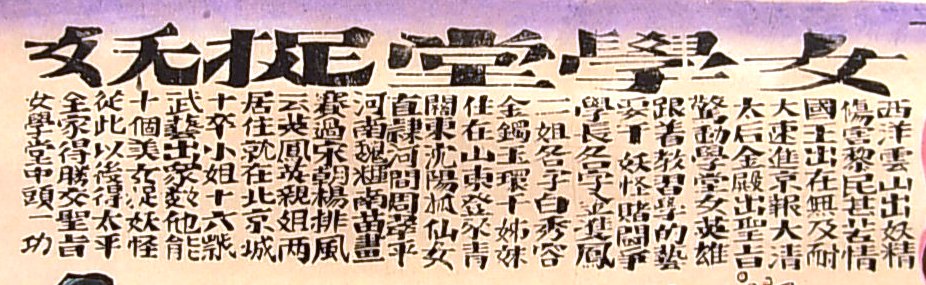 女學堂捉妖
西洋雲山出妖精
傷害黎民甚苦情
國王出在無及耐
大速進京報大清
太后金殿出聖旨
驚動學堂女英雄
跟着教書學的藝
要于妖怪賭鬪爭
學長名字英鳳
二姐名字白秀容
金鐲玉環十姊妹
住在山東登萊青
關東沈陽狐仙女
直隸河間周翠平
河南輝南苗畫
賽過宋朝楊排風
云英鳳英親姐两
居住就在北京城
十卒小姐十六歲
武藝出衆数他能
十個美女捉妖怪
從此以後得太平
全家得勝交聖旨
女學堂中頭一功